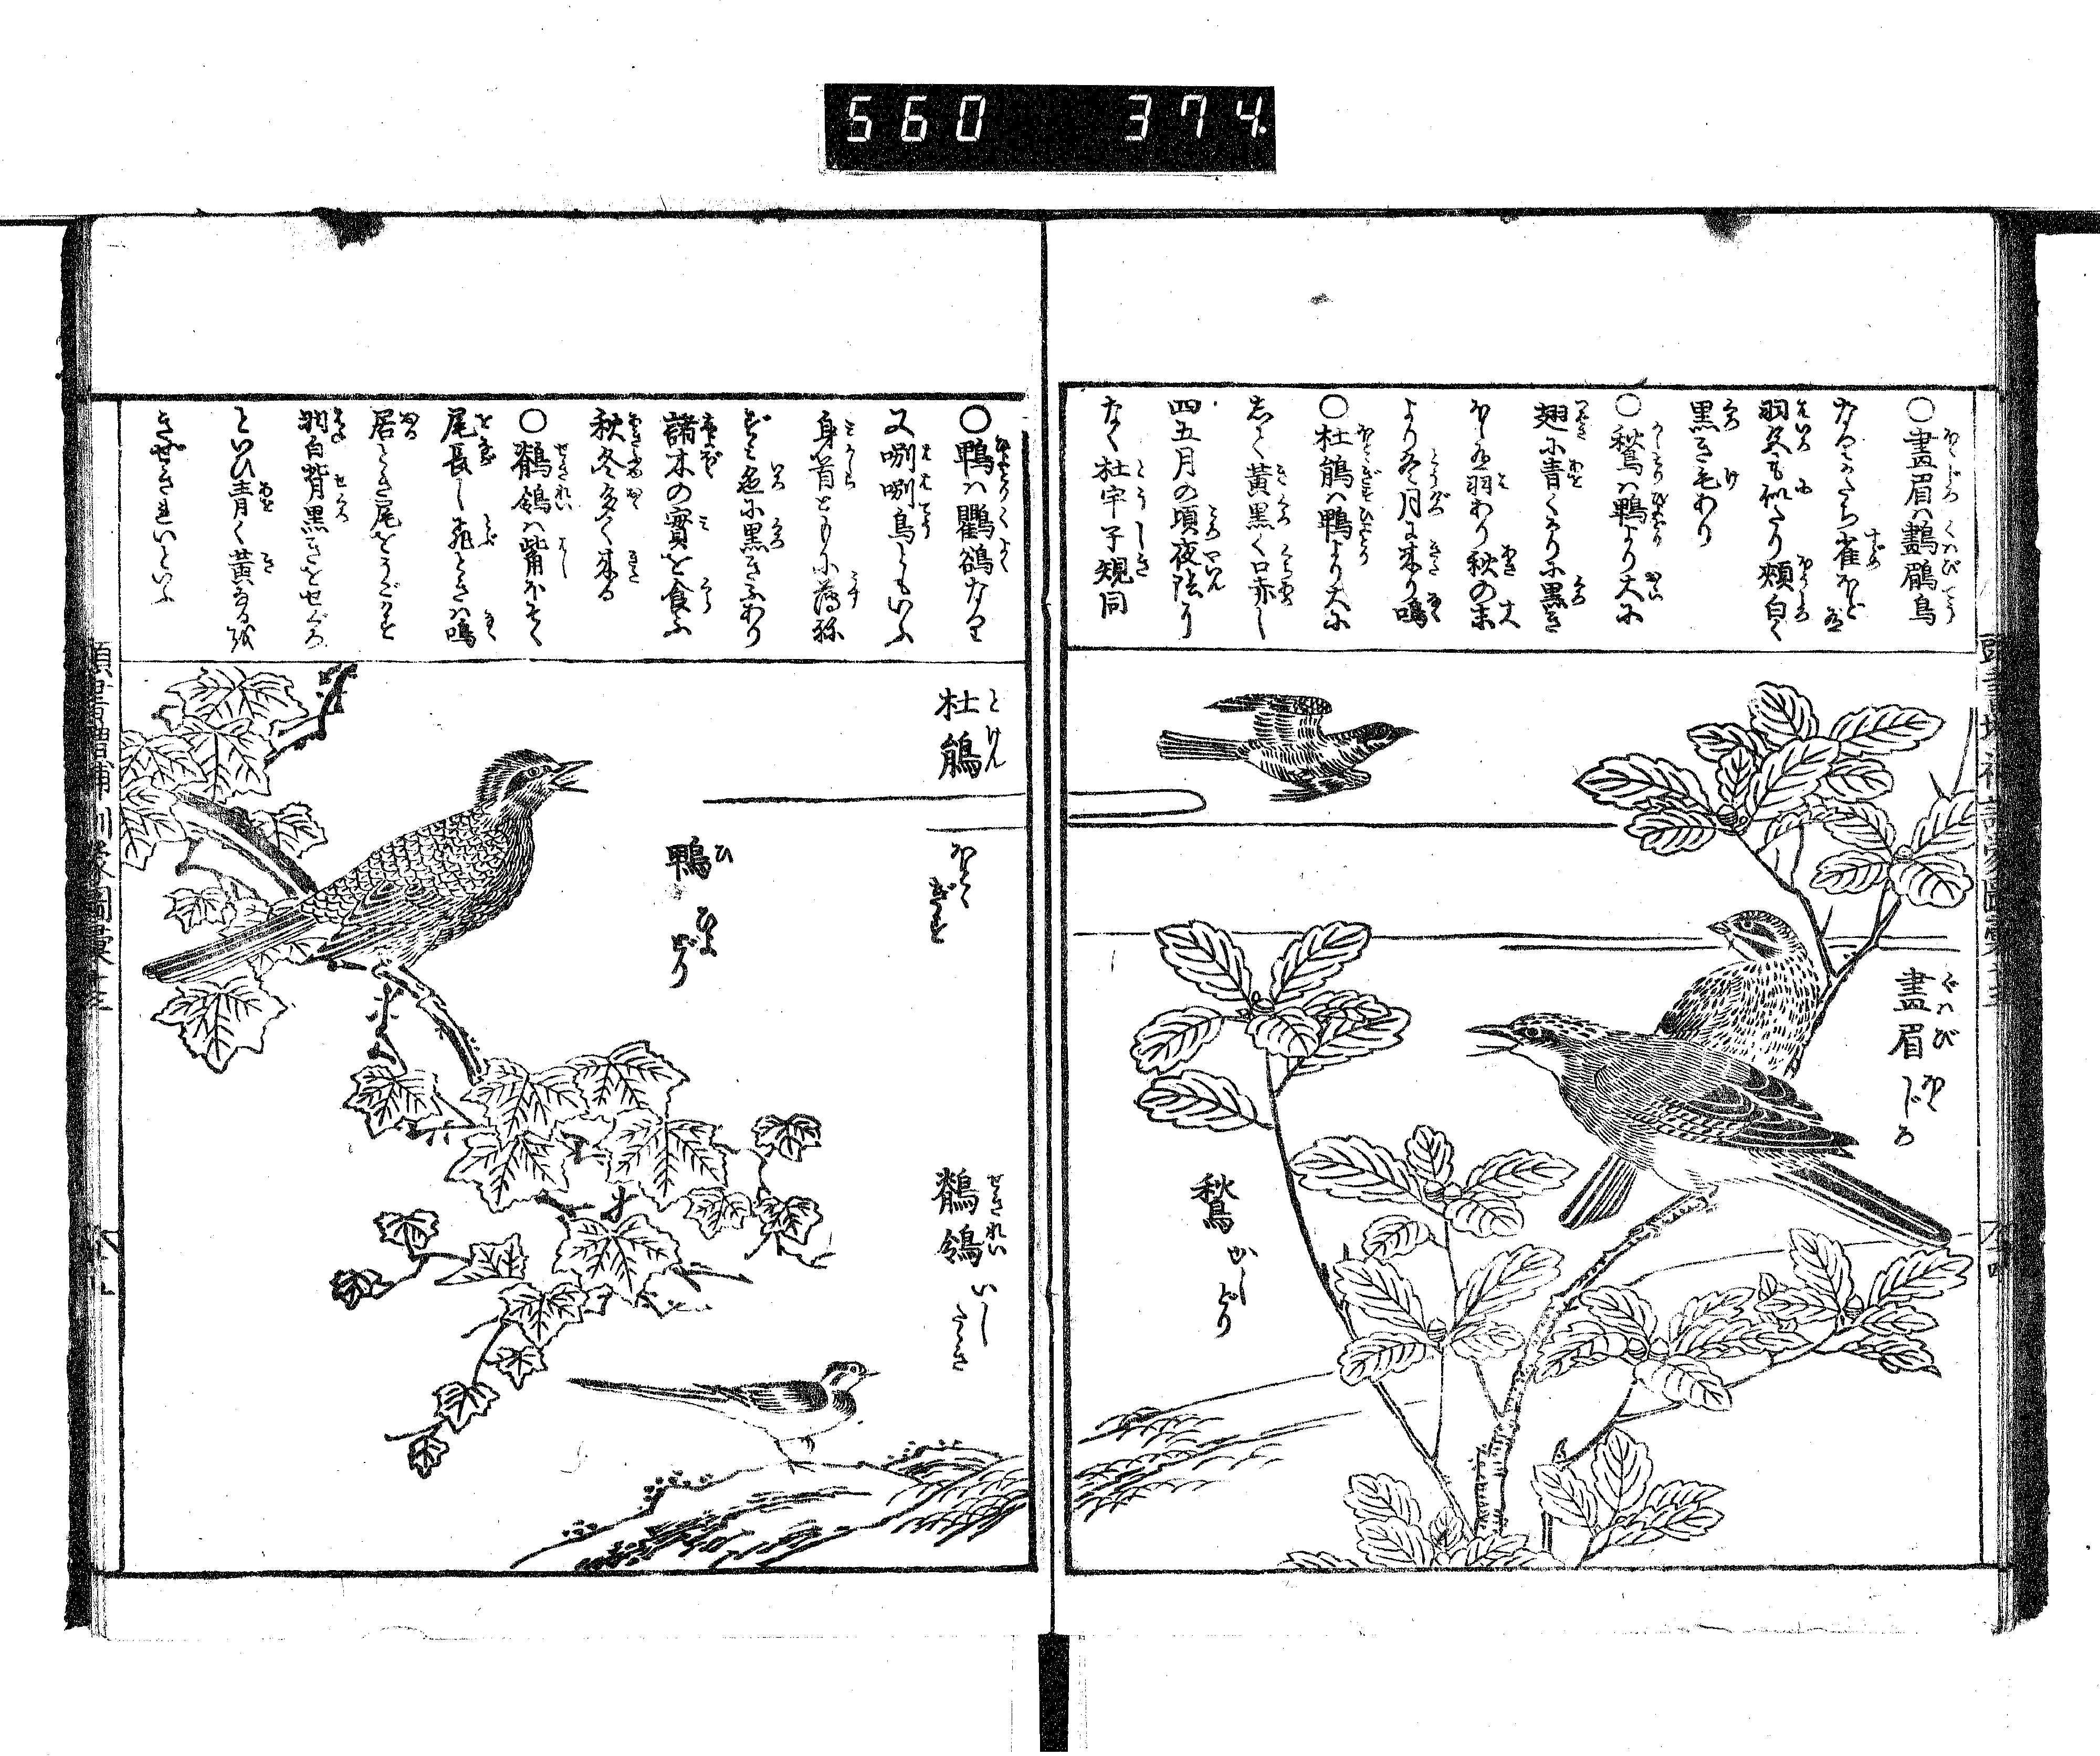 560 374
○畫眉ハ鷧鶥鳥
なるかたち雀ほどにて
羽色も似たり頬白く
黒き毛あり
○鶖ハ鵯より大に
翅に青くひかり黒き
ほし羽あり秋の末
より冬月に来り鳴
○杜鵑ハ鵯より大に
して黄黒く口赤し
四五月の頃夜陰に
なく杜宇子規同
畫眉
くハび
ほゝじろ
鶖
かしどり
○鵯ハ鸜鵒なり
又唎唎鳥ともいふ
身首ともに薄
ずミ色に黒きふあり
諸木の實を食ふ
秋冬多く来る
○鶺鴒ハ觜ほそく
尾長し飛ときハ鳴
居とき尾をうごかす
羽白背黒きをせぐろ
といひ青く黄なるを
きせきれいといふ
杜鵑
とけん
ほとゝぎす
鵯
ひ
ひよどり
鶺鴒
せきれい
いしたゝき